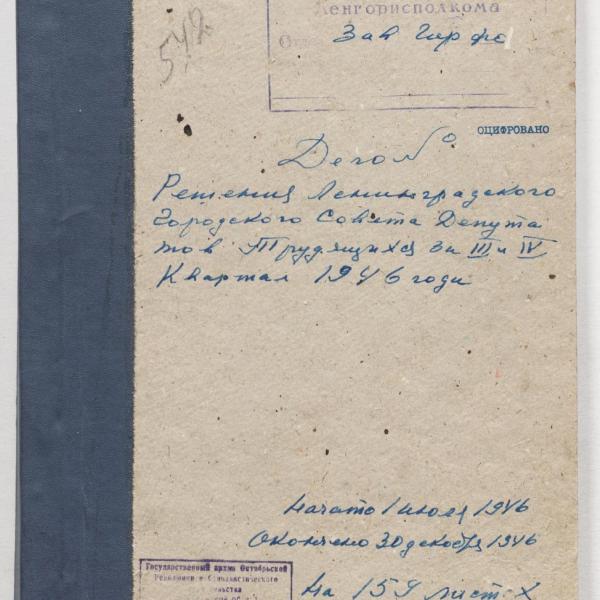 542
Ленгорисполкома
Зав Гор фо
ОЦИФРОВАНО
Дело №
Решения Ленинградского
Городского Совета Депута
тов Трудящихся за III и IV
Квартал 1946 года
Начато 1 июля 1946
Окончено 30 декабря 1946
Государственный архив Октябрьской
Революции и Социалистического
На 159 лист-х